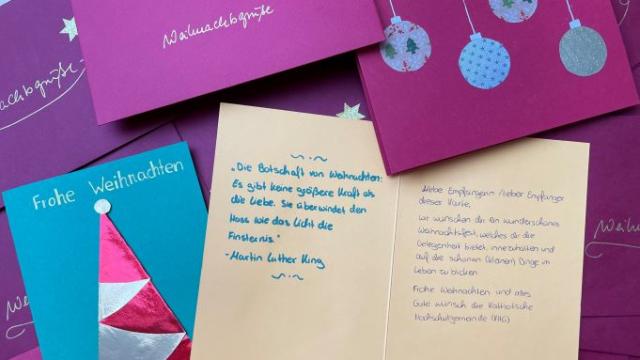 Weihnachtsgrüße
Weihnachtsgrüße
Frohe Weihnachten
„Die Botschaft von Weihnachten:
Es gibt keine größere Kraft als
die Liebe. Sie überwindet den
Hass wie das Licht die
Finsternis."
- Martin Luther King
Liebe Empfängerin, lieber Empfänger
dieser Karte,
wir wünschen dir ein wunderschönes
Weihnachtsfest, welches dir die
Gelegenheit bietet, innezuhalten und
auf die schönen (kleinen) Dinge im
Leben zu blicken.
Frohe Weihnachten und alles
Gute wünscht die Katholische
Hochschulgemeinde (KHG)